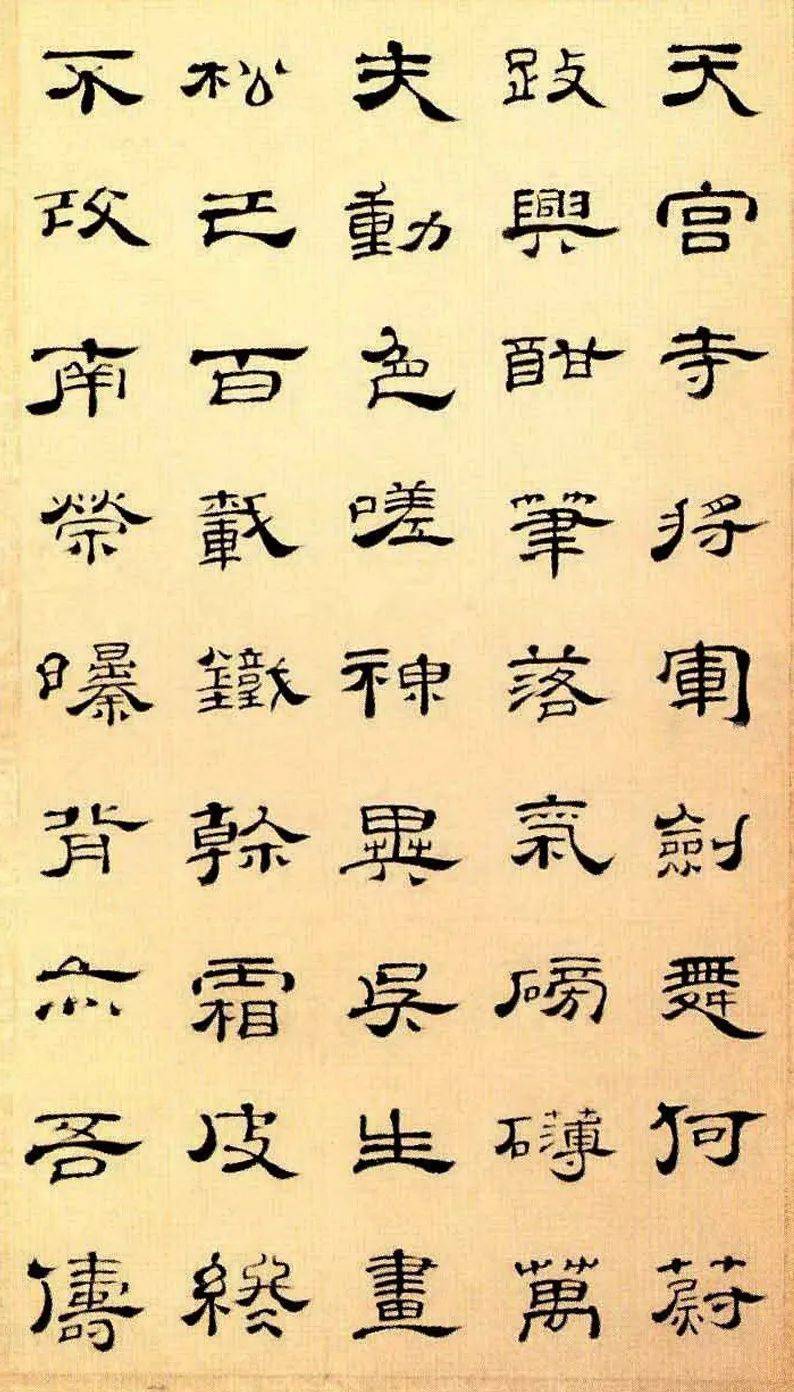 天宮寺将軍劍舞何蔚
跂興酣筆落氣磅礴萬
夫動色嗟神異吳生畫
松已百載鐵幹霜皮終
不改南榮曝背亦吾儔